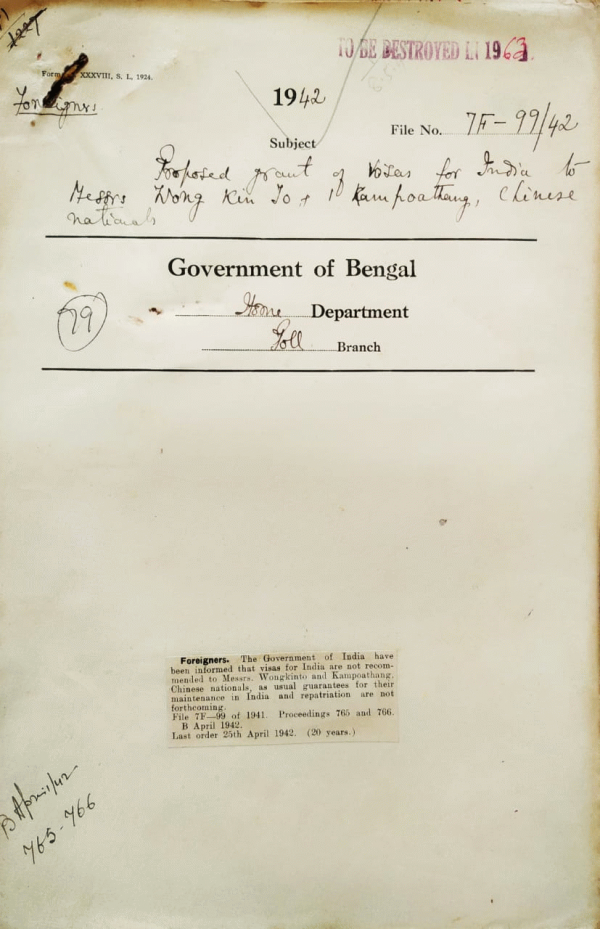 TO BE DESTROYED IN 1963.
Form XXXVIII, S. L. 1924.
Foreigners
1942
File No. 7F-99/42
Subject
Proposed grant of Visas for India to
Messrs Wong Kin To + Kampoathang, Chinese
nationals
Government of Bengal
79
Home Department
Poll Branch
Foreigners. The Government of India have
been informed that visas for India are not recom-
mended to Messrs. Wongkinto and Kampoathang,
Chinese nationals, as usual guarantees for their
maintenance in India and repatriation are not
forthcoming.
File 7F—99 of 1941. Proceedings 765 and 766.
B April 1942.
Last order 25th April 1942. (20 years.)
B April/42
765-766